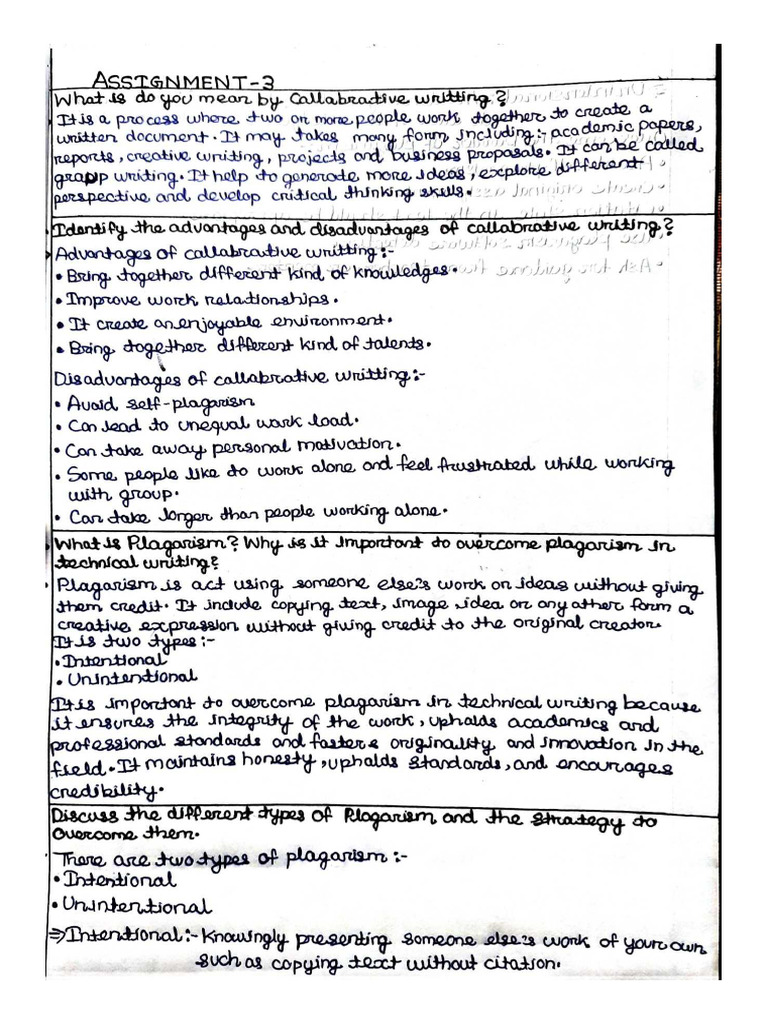 ASSIGNMENT-3
What is do you mean by Callabrative writting?
It is a process where two or more people work together to create a
written document. It may takes many form including:- academic papers,
reports, creative writing, projects and business proposals. It can be called
group writing. It help to generate more ideas, explore different
perspective and develop critical thinking skills.
Identify the advantages and disadvantages of callabrative writing?
Advantages of callabrative writting:-
• Bring together different kind of knowledges.
• Improve work relationships.
• It create an enjoyable environment.
• Bring together different kind of talents.
Disadvantages of callabrative writting:-
• Avoid self-plagarism
• Can lead to unequal work load.
• Can take away personal motivation.
• Some people like to work alone and feel frustrated while working
with group.
• Can take longer than people working alone.
What is Plagarism? Why is it important to overcome plagarism in
technical writing?
Plagarism is act using someone else's work or ideas without giving
them credit. It include copying text, image idea or any other form a
creative expression without giving credit to the original creator.
It is two types:-
• Intentional
• Unintentional
It is important to overcome plagarism in technical writing because
it ensures the integrity of the work, upholds academics and
professional standards and fosters originality and innovation in the
field. It maintains honesty, upholds standards, and encourages
credibility.
Discuss the different types of Plagarism and the strategy to
overcome them.
There are two types of plagarism:-
• Intentional
• Unintentional
⇒ Intentional:- Knowingly presenting someone else's work of your own
such as copying text without citation.